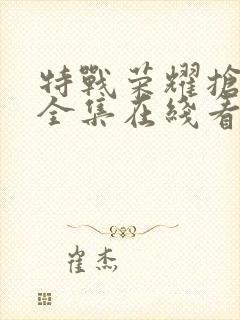 特戰荣耀搶
全集在线看
崔杰